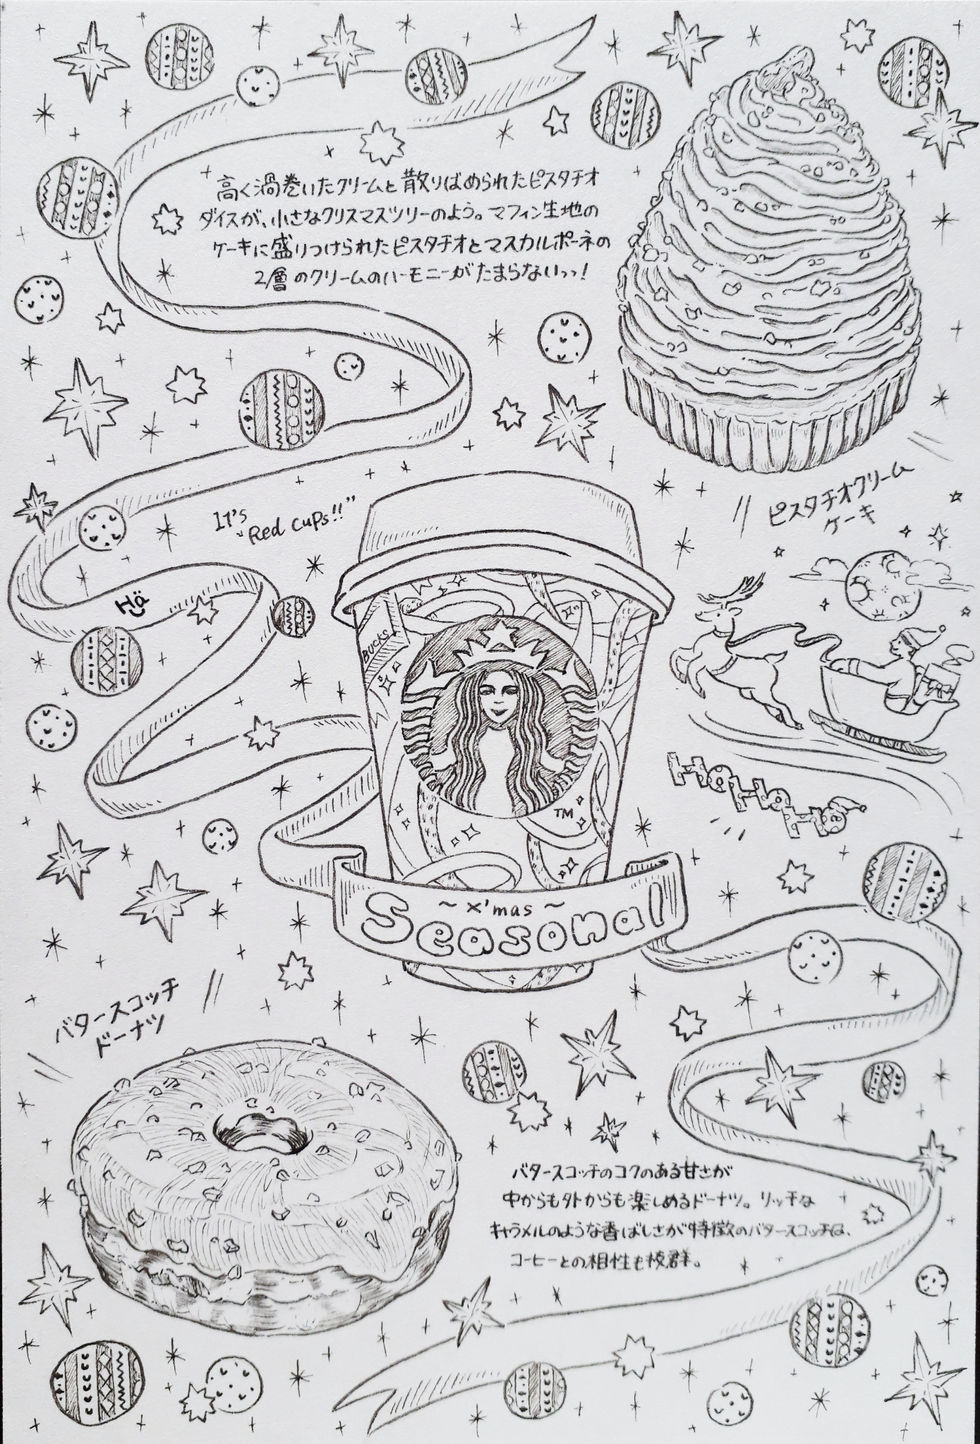 高く渦巻いたクリームと散りばめられたピスタチオ
ダイスが、小さなクリスマスツリーのよう。マフィン生地の
ケーキに盛りつけられたピスタチオとマスカルポーネの
2層のクリームのハーモニーがたまらないっっ!
ピスタチオクリーム
ケーキ
It's
Red cups!!"
Hä
BUCKS
TM
HO HO HO
~ x'mas ~
Seasonal
バタースコッチ
ドーナツ
バタースコッチのコクのある甘さが
中からも外からも楽しめるドーナツ。リッチな
キャラメルのような香ばしさが特徴のバタースコッチは、
コーヒーとの相性も抜群。